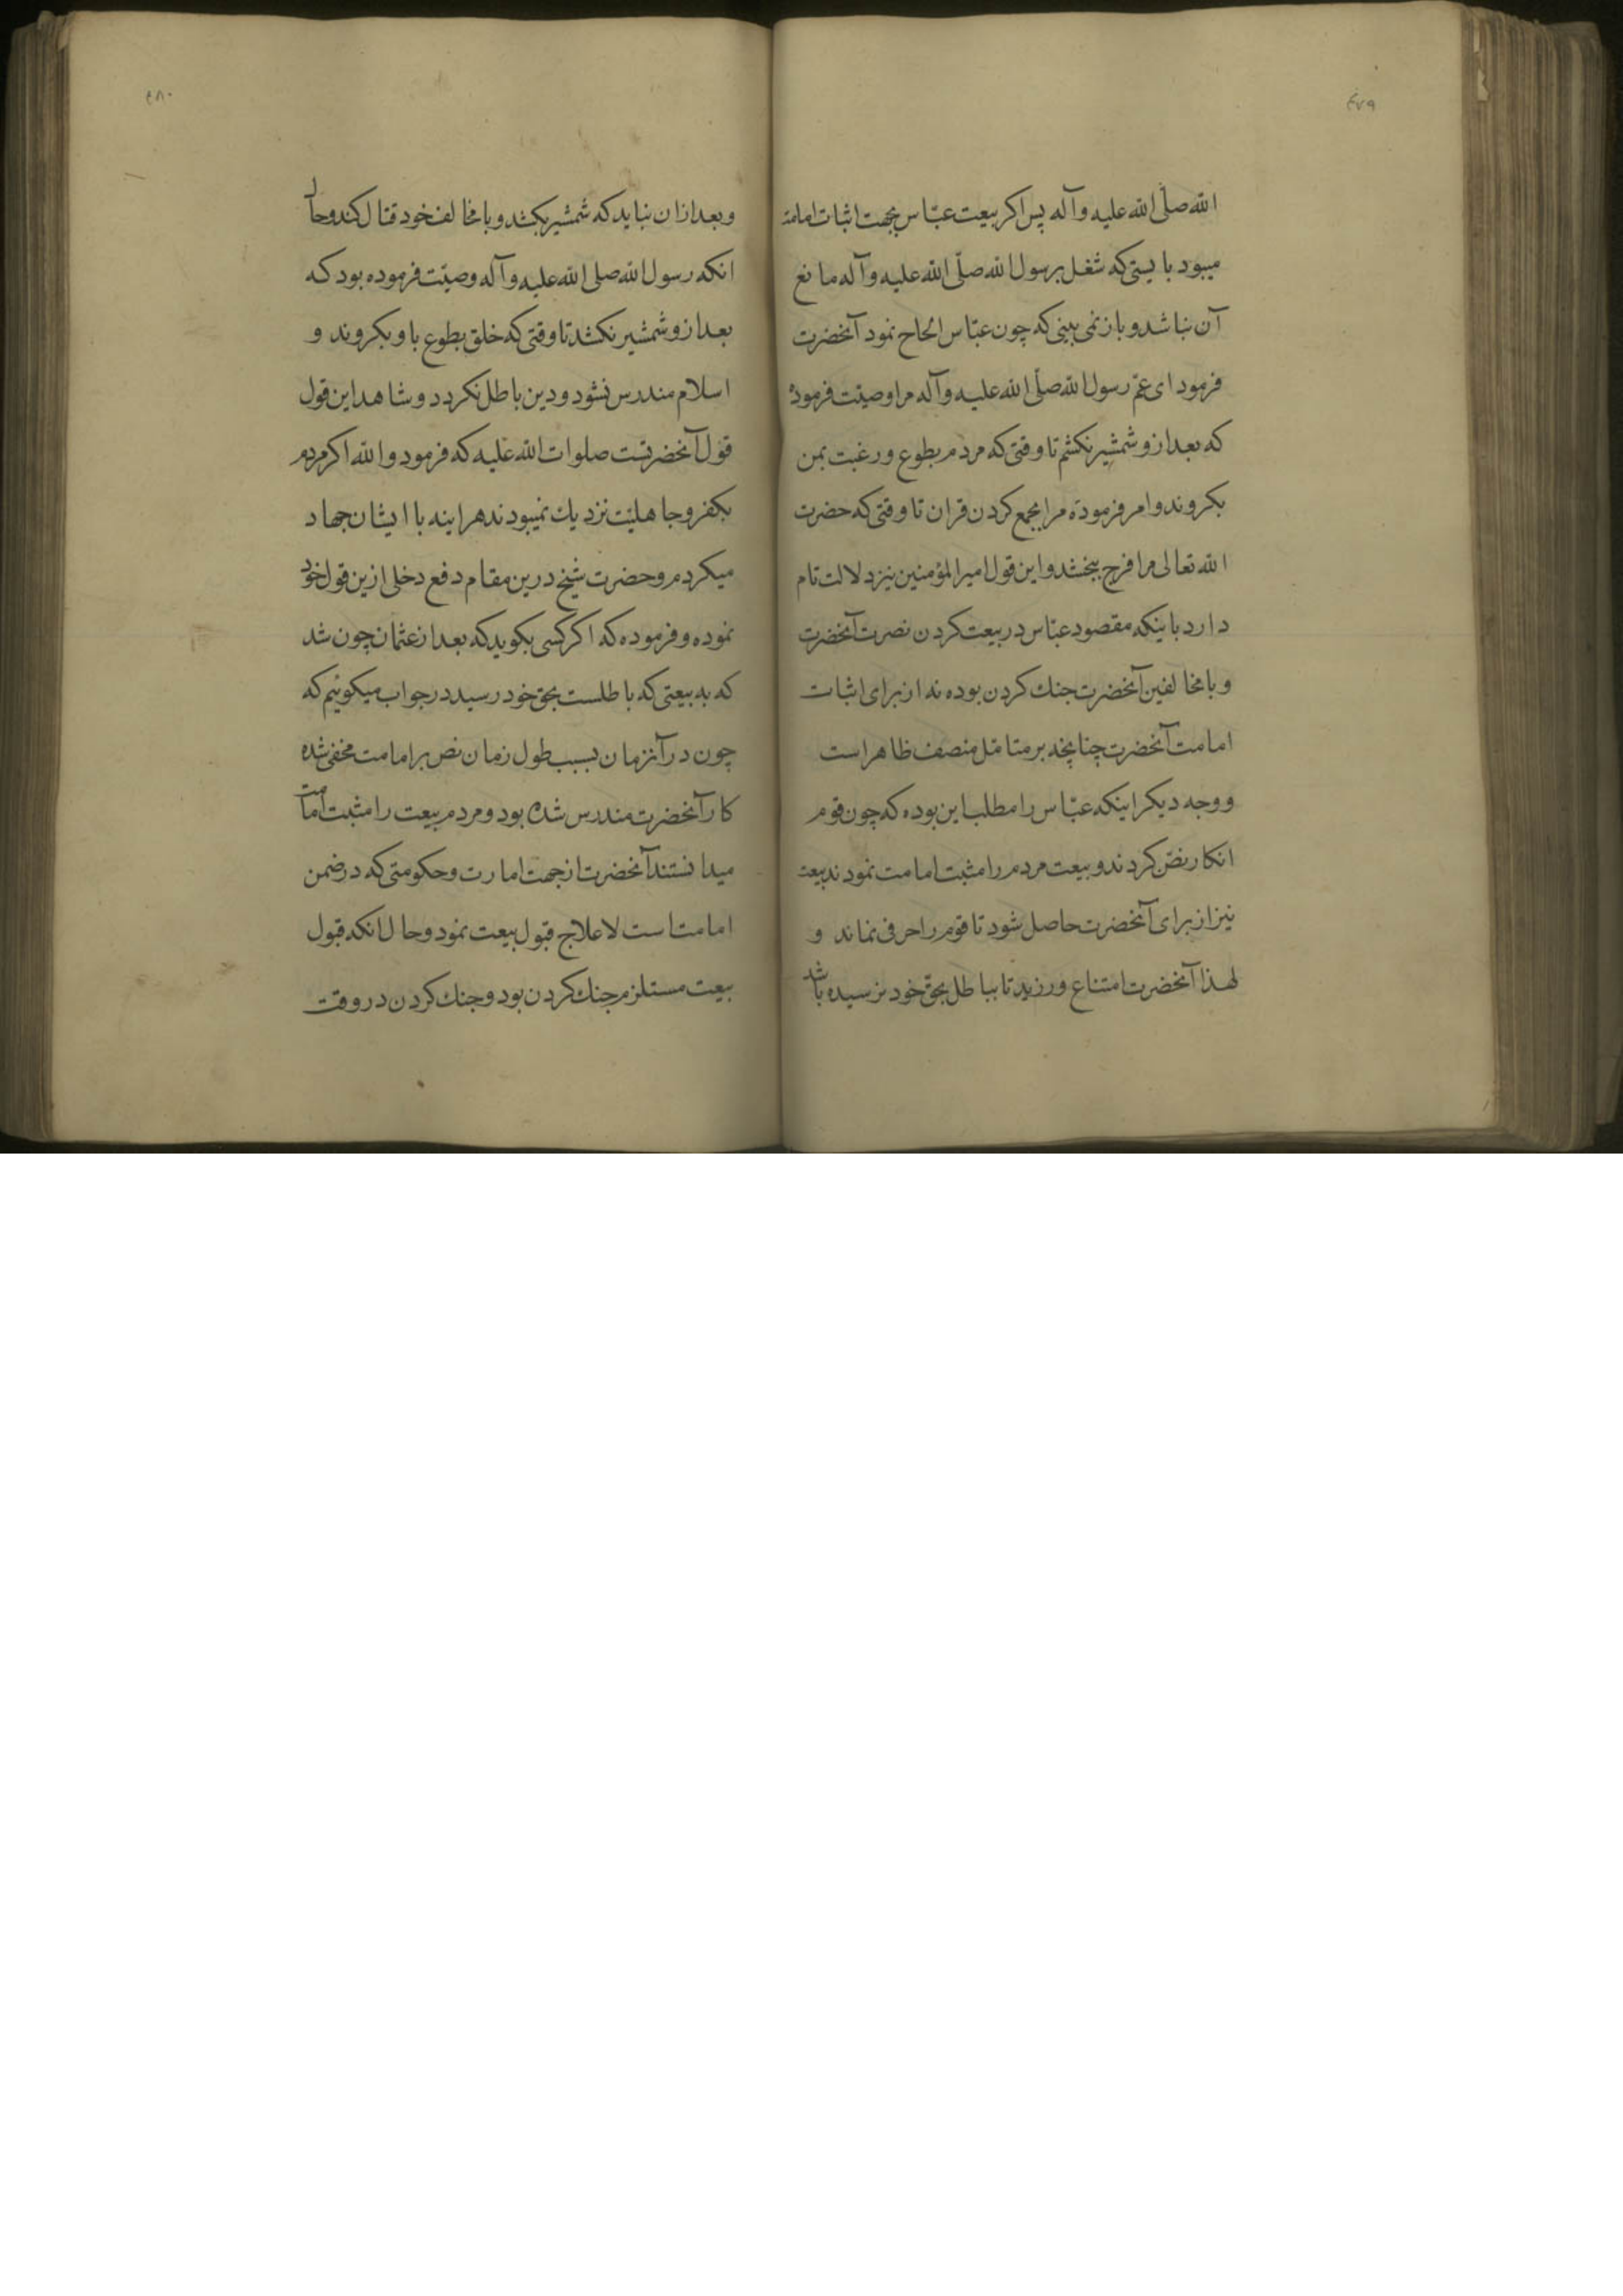 ٤٧٩
الله صلّی الله علیه وآله پس اکر بیعت عبّاس بجهت اثبات امامت
میبود بایستی که شغل برسول الله صلّی الله علیه وآله مانع
آن نباشد و باز نمی بینی که چون عبّاس الحاح نمود آنحضرت
فرمود ای عمّ رسول الله صلّی الله علیه وآله مرا وصیّت فرموده
که بعد ازو شمشیر نکشم تا وقتی که مردم بطوع ورغبت بمن
بکروند وامر فرموده مرا بجمع کردن قران تا وقتی که حضرت
الله تعالی مرا فرج ببخشد و این قول امیرالمؤمنین نیز دلالت تام
دارد باینکه مقصود عبّاس در بیعت کردن نصرت آنحضرت
و با مخالفین آنحضرت جنك کردن بوده نه از برای اثبات
امامت آنحضرت چنانچه بر متامّل منصف ظاهر است
و وجه دیکر اینکه عبّاس را مطلب این بوده که چون قوم
انکار نصّ کردند و بیعت مردم را مثبت امامت نمودند بیعت
نیز از برای آنحضرت حاصل شود تا قوم را حرفی نماند و
لهذا آنحضرت امتناع ورزید تا بباطل بحقّ خود نرسیده باشد
٤٨٠
و بعد ازان نباید که شمشیر بکشد و با مخالف خود قتال کند و حال
انکه رسول الله صلی الله علیه وآله وصیّت فرموده بود که
بعد ازو شمشیر نکشد تا وقتی که خلق بطوع باو بکروند و
اسلام مندرس نشود و دین باطل نکردد و شاهد این قول
قول آنحضرتست صلوات الله علیه که فرمود والله اکر مردم
بکفر و جاهلیّت نزدیك نمیبودند هراینه با ایشان جهاد
میکردم و حضرت شیخ درین مقام دفع دخلی ازین قول خود
نموده و فرموده که اکر کسی بکوید که بعد از عثمان چون شد
که به بیعتی که باطلست بحق خود رسید در جواب میکوئیم که
چون در آنزمان بسبب طول زمان نص بر امامت مخفی شده
کار آنحضرت مندرس شده بود و مردم بیعت را مثبت امامت
میدانستند آنحضرت از جهت امارت و حکومتی که در ضمن
امامت است لاعلاج قبول بیعت نمود و حال انکه قبول
بیعت مستلزم جنك کردن بود و جنك کردن در وقت